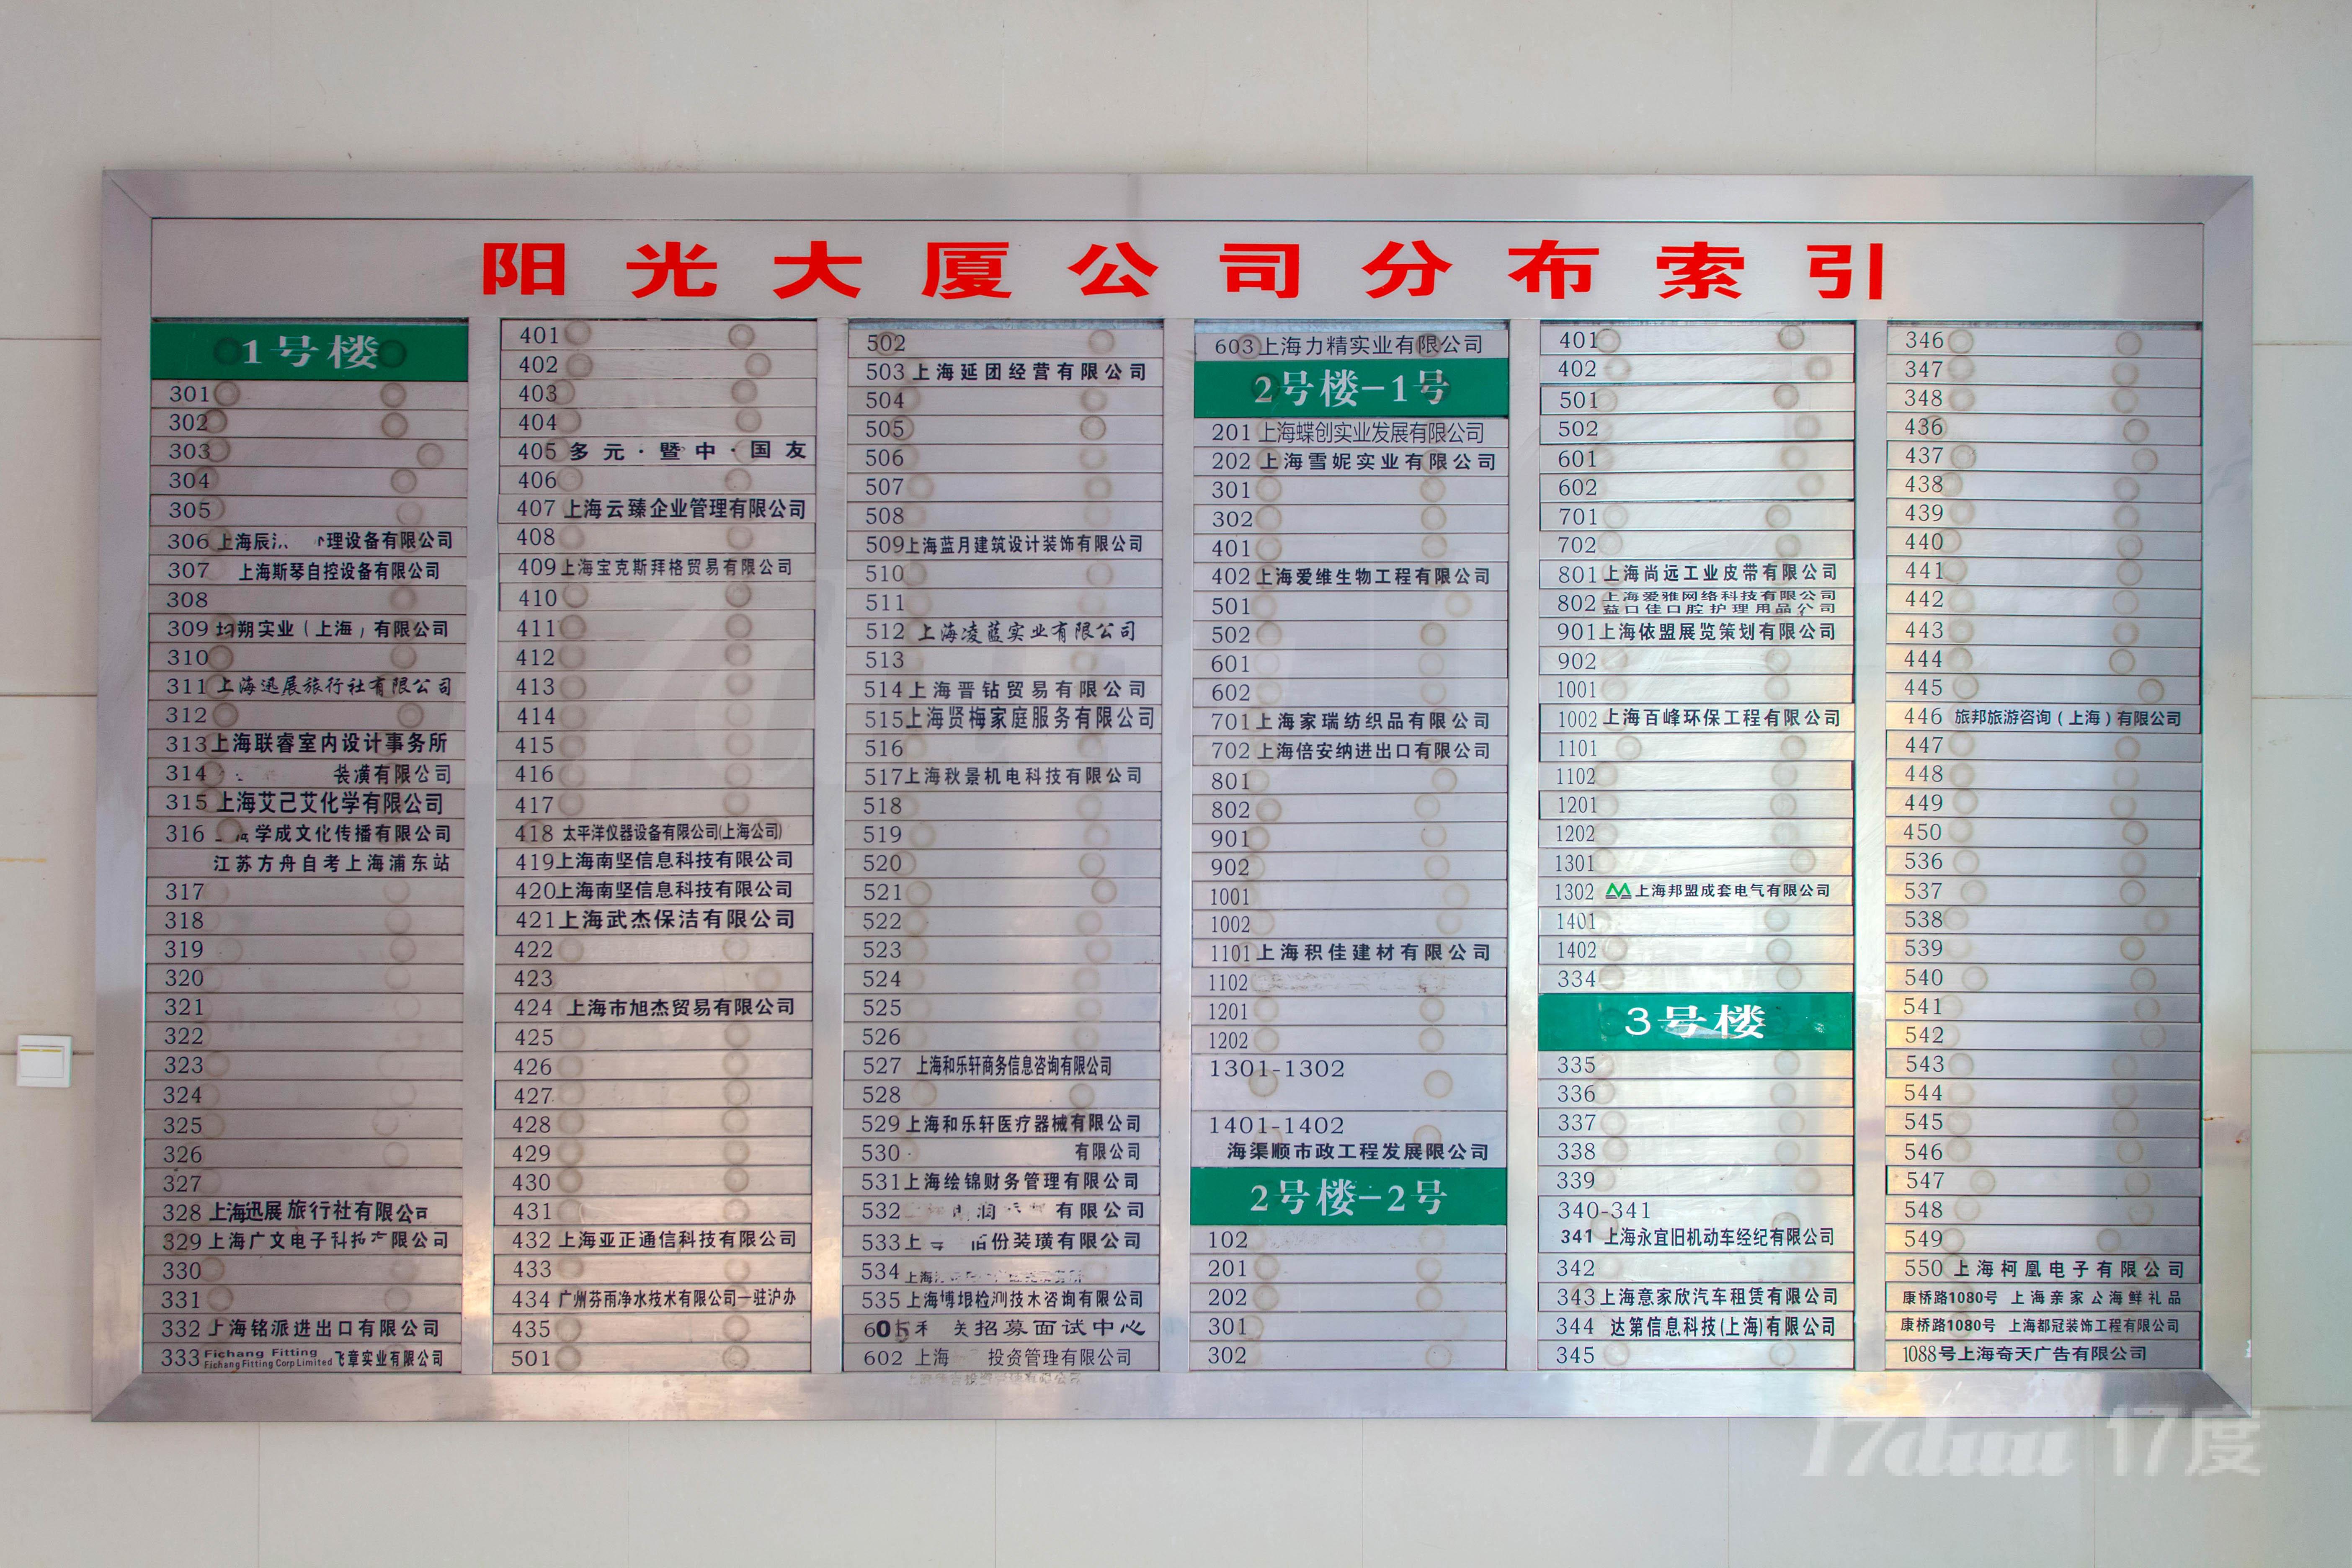 阳光大厦公司分布索引
1号楼
301
302
303
304
305
306 上海辰 理设备有限公司
307 上海斯琴自控设备有限公司
308
309 均朔实业（上海）有限公司
310
311 上海迅展旅行社有限公司
312
313 上海联睿室内设计事务所
314 装潢有限公司
315 上海艾己艾化学有限公司
316 学成文化传播有限公司
江苏方舟自考上海浦东站
317
318
319
320
321
322
323
324
325
326
327
328 上海迅展旅行社有限公司
329 上海广文电子科技有限公司
330
331
332 上海铭派进出口有限公司
333 Fichang Fitting Fichang Fitting Corp Limited 飞章实业有限公司
401
402
403
404
405 多元·暨中·国友
406
407 上海云臻企业管理有限公司
408
409 上海宝克斯拜格贸易有限公司
410
411
412
413
414
415
416
417
418 太平洋仪器设备有限公司(上海公司)
419 上海南坚信息科技有限公司
420 上海南坚信息科技有限公司
421 上海武杰保洁有限公司
422
423
424 上海市旭杰贸易有限公司
425
426
427
428
429
430
431
432 上海亚正通信科技有限公司
433
434 广州芬雨净水技术有限公司一驻沪办
435
501
502
503 上海延团经营有限公司
504
505
506
507
508
509 上海蓝月建筑设计装饰有限公司
510
511
512 上海凌蓝实业有限公司
513
514 上海晋钻贸易有限公司
515 上海贤梅家庭服务有限公司
516
517 上海秋景机电科技有限公司
518
519
520
521
522
523
524
525
526
527 上海和乐轩商务信息咨询有限公司
528
529 上海和乐轩医疗器械有限公司
530 有限公司
531 上海绘锦财务管理有限公司
532 润 有限公司
533 上 佰份装璜有限公司
534 上海
535 上海博垠检测技术咨询有限公司
605 招募面试中心
602 上海 投资管理有限公司
603 上海力精实业有限公司
2号楼-1号
201 上海蝶创实业发展有限公司
202 上海雪妮实业有限公司
301
302
401
402 上海爱维生物工程有限公司
501
502
601
602
701 上海家瑞纺织品有限公司
702 上海倍安纳进出口有限公司
801
802
901
902
1001
1002
1101 上海积佳建材有限公司
1102
1201
1202
1301-1302
1401-1402
海渠顺市政工程发展限公司
2号楼-2号
102
201
202
301
302
401
402
501
502
601
602
701
702
801 上海尚远工业皮带有限公司
802 上海爱雅网络科技有限公司
益口佳口腔护理用品公司
901 上海依盟展览策划有限公司
902
1001
1002 上海百峰环保工程有限公司
1101
1102
1201
1202
1301
1302 上海邦盟成套电气有限公司
1401
1402
334
3号楼
335
336
337
338
339
340-341
341 上海永宜旧机动车经纪有限公司
342
343 上海意家欣汽车租赁有限公司
344 达第信息科技(上海)有限公司
345
346
347
348
436
437
438
439
440
441
442
443
444
445
446 旅邦旅游咨询（上海）有限公司
447
448
449
450
536
537
538
539
540
541
542
543
544
545
546
547
548
549
550 上海柯凰电子有限公司
康桥路1080号 上海亲家公海鲜礼品
康桥路1080号 上海都冠装饰工程有限公司
1088号上海奇天广告有限公司
17duu 17度